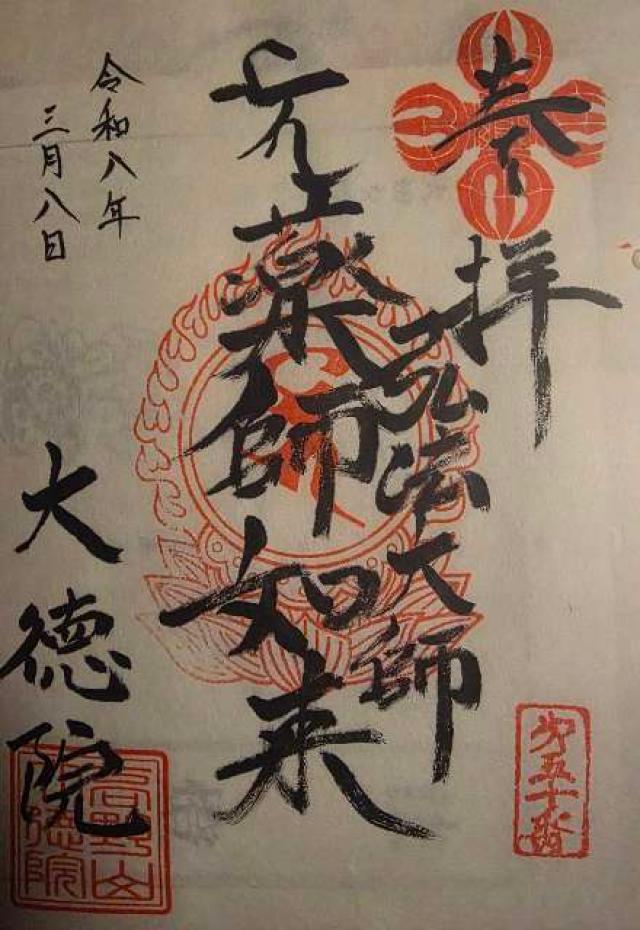 奉拝
弘法大師
薬師如来
令和八年
三月八日
大徳院
第五十番
高野山
大徳院